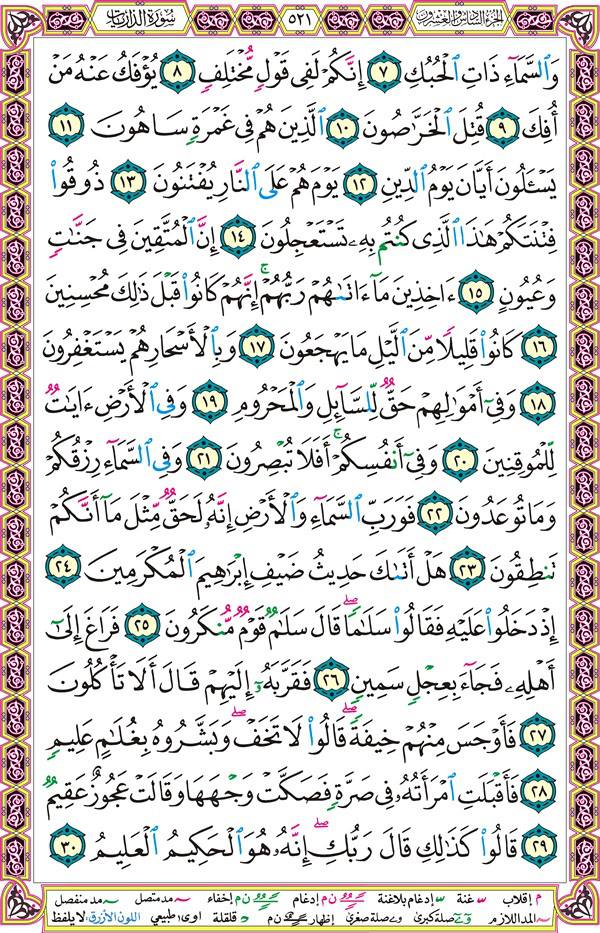 الجزء السادس والعشرون ٥٢١ سورة الذاريات
وَٱلسَّمَآءِ ذَاتِ ٱلْحُبُكِ ٧ إِنَّكُمْ لَفِى قَوْلٍ مُّخْتَلِفٍ ٨ يُؤْفَكُ عَنْهُ مَنْ
أُفِكَ ٩ قُتِلَ ٱلْخَرَّٰصُونَ ١٠ ٱلَّذِينَ هُمْ فِى غَمْرَةٍ سَاهُونَ ١١
يَسْـَٔلُونَ أَيَّانَ يَوْمُ ٱلدِّينِ ١٢ يَوْمَ هُمْ عَلَى ٱلنَّارِ يُفْتَنُونَ ١٣ ذُوقُوا۟
فِتْنَتَكُمْ هَٰذَا ٱلَّذِى كُنتُم بِهِۦ تَسْتَعْجِلُونَ ١٤ إِنَّ ٱلْمُتَّقِينَ فِى جَنَّٰتٍ
وَعُيُونٍ ١٥ ءَاخِذِينَ مَآ ءَاتَىٰهُمْ رَبُّهُمْ ۚ إِنَّهُمْ كَانُوا۟ قَبْلَ ذَٰلِكَ مُحْسِنِينَ
١٦ كَانُوا۟ قَلِيلًا مِّنَ ٱلَّيْلِ مَا يَهْجَعُونَ ١٧ وَبِٱلْأَسْحَارِ هُمْ يَسْتَغْفِرُونَ
١٨ وَفِىٓ أَمْوَٰلِهِمْ حَقٌّ لِّلسَّآئِلِ وَٱلْمَحْرُومِ ١٩ وَفِى ٱلْأَرْضِ ءَايَٰتٌ
لِّلْمُوقِنِينَ ٢٠ وَفِىٓ أَنفُسِكُمْ ۚ أَفَلَا تُبْصِرُونَ ٢١ وَفِى ٱلسَّمَآءِ رِزْقُكُمْ
وَمَا تُوعَدُونَ ٢٢ فَوَرَبِّ ٱلسَّمَآءِ وَٱلْأَرْضِ إِنَّهُۥ لَحَقٌّ مِّثْلَ مَآ أَنَّكُمْ
تَنطِقُونَ ٢٣ هَلْ أَتَىٰكَ حَدِيثُ ضَيْفِ إِبْرَٰهِيمَ ٱلْمُكْرَمِينَ ٢٤
إِذْ دَخَلُوا۟ عَلَيْهِ فَقَالُوا۟ سَلَٰمًا ۖ قَالَ سَلَٰمٌ قَوْمٌ مُّنكَرُونَ ٢٥ فَرَاغَ إِلَىٰٓ
أَهْلِهِۦ فَجَآءَ بِعِجْلٍ سَمِينٍ ٢٦ فَقَرَّبَهُۥٓ إِلَيْهِمْ قَالَ أَلَا تَأْكُلُونَ
٢٧ فَأَوْجَسَ مِنْهُمْ خِيفَةً ۖ قَالُوا۟ لَا تَخَفْ ۖ وَبَشَّرُوهُ بِغُلَٰمٍ عَلِيمٍ
٢٨ فَأَقْبَلَتِ ٱمْرَأَتُهُۥ فِى صَرَّةٍ فَصَكَّتْ وَجْهَهَا وَقَالَتْ عَجُوزٌ عَقِيمٌ
٢٩ قَالُوا۟ كَذَٰلِكِ قَالَ رَبُّكِ ۖ إِنَّهُۥ هُوَ ٱلْحَكِيمُ ٱلْعَلِيمُ ٣٠
م إقلاب غنة إدغام بلاغنة ن م إدغام ن م إخفاء مد متصل مد منفصل
المد اللازم صلة كبرى صلة صغرى إظهار ن م قلقلة اوى طبيعي اللون الأزرق: لا يلفظ